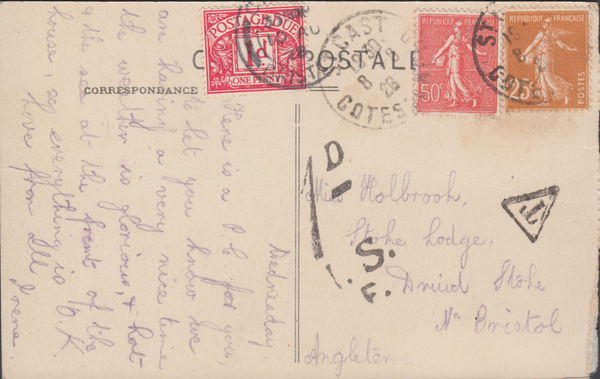 CARTE POSTALE
CORRESPONDANCE
POSTAGE DUE
1D
ONE PENNY
REPUBLIQUE FRANÇAISE
50c
POSTES
REPUBLIQUE FRANÇAISE
25c
POSTES
ST CAST
COTES
8
28
ST
COTES
8
1D
I.S.F.
T
Wednesday.
Here is a P.C for you,
to let you know we
are having a very nice time
the weather is glorious, & hot
& the sea at the front of the
house, so everything is O.K.
Love from All
Irene
Miss Holbrook,
Stoke Lodge,
Druid Stoke
Nr Bristol
Angleterre.